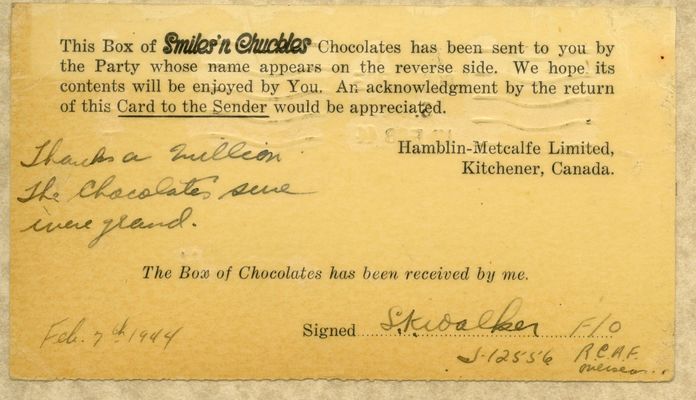 This Box of Smiles'n Chuckles Chocolates has been sent to you by
the Party whose name appears on the reverse side. We hope its
contents will be enjoyed by You. An acknowledgment by the return
of this Card to the Sender would be appreciated.
Hamblin-Metcalfe Limited,
Kitchener, Canada.
Thanks a million
The Chocolates sure
were grand.
The Box of Chocolates has been received by me.
Feb. 7th 1944
Signed S.K. Walker F/O
J-12556 R.C.A.F.
Overseas.